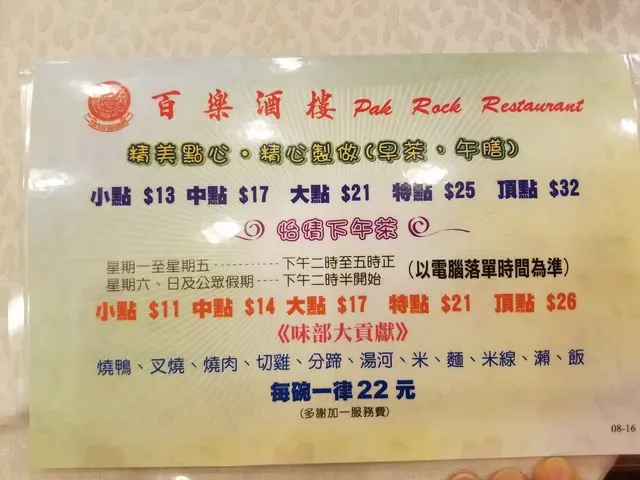 百樂酒樓 Pak Rock Restaurant
精美點心·精心製做(早茶,午膳)
小點 $13 中點 $17 大點 $21 特點 $25 頂點 $32
怡情下午茶
星期一至星期五 ---------- 下午二時至五時正
星期六、日及公眾假期 ---- 下午二時半開始
(以電腦落單時間為準)
小點 $11 中點 $14 大點 $17 特點 $21 頂點 $26
《味部大貢獻》
燒鴨、叉燒、燒肉、切雞、分蹄、湯河、米、麵、米線、瀨、飯
每碗一律22元
(多謝加一服務費)
08-16